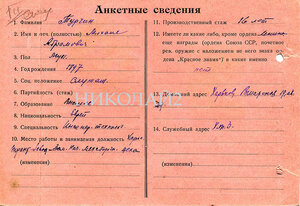 Анкетные сведения
1. Фамилия Тургин
2. Имя и отч. (полностью) Михаил
Абрамович
3. Пол муж.
4. Год рождения 1917
5. Соц. положение служащ.
6. Партийность
7. Образование высшее
8. Национальность еврей
9. Специальность Инженер-технолог
10. Место работы и занимаемая должность
(изменения)
11. Производственный стаж 16 лет
12. Имеете ли какие-либо, кроме ордена Ленина,
еще награды (ордена Союза ССР, почетное рев.
оружие с наложением на него знака ор-
дена «Красное знамя») и какие именно
нет
13. Домашний адрес Харьков
14. Служебный адрес
(изменения)
НИКОЛАИ2